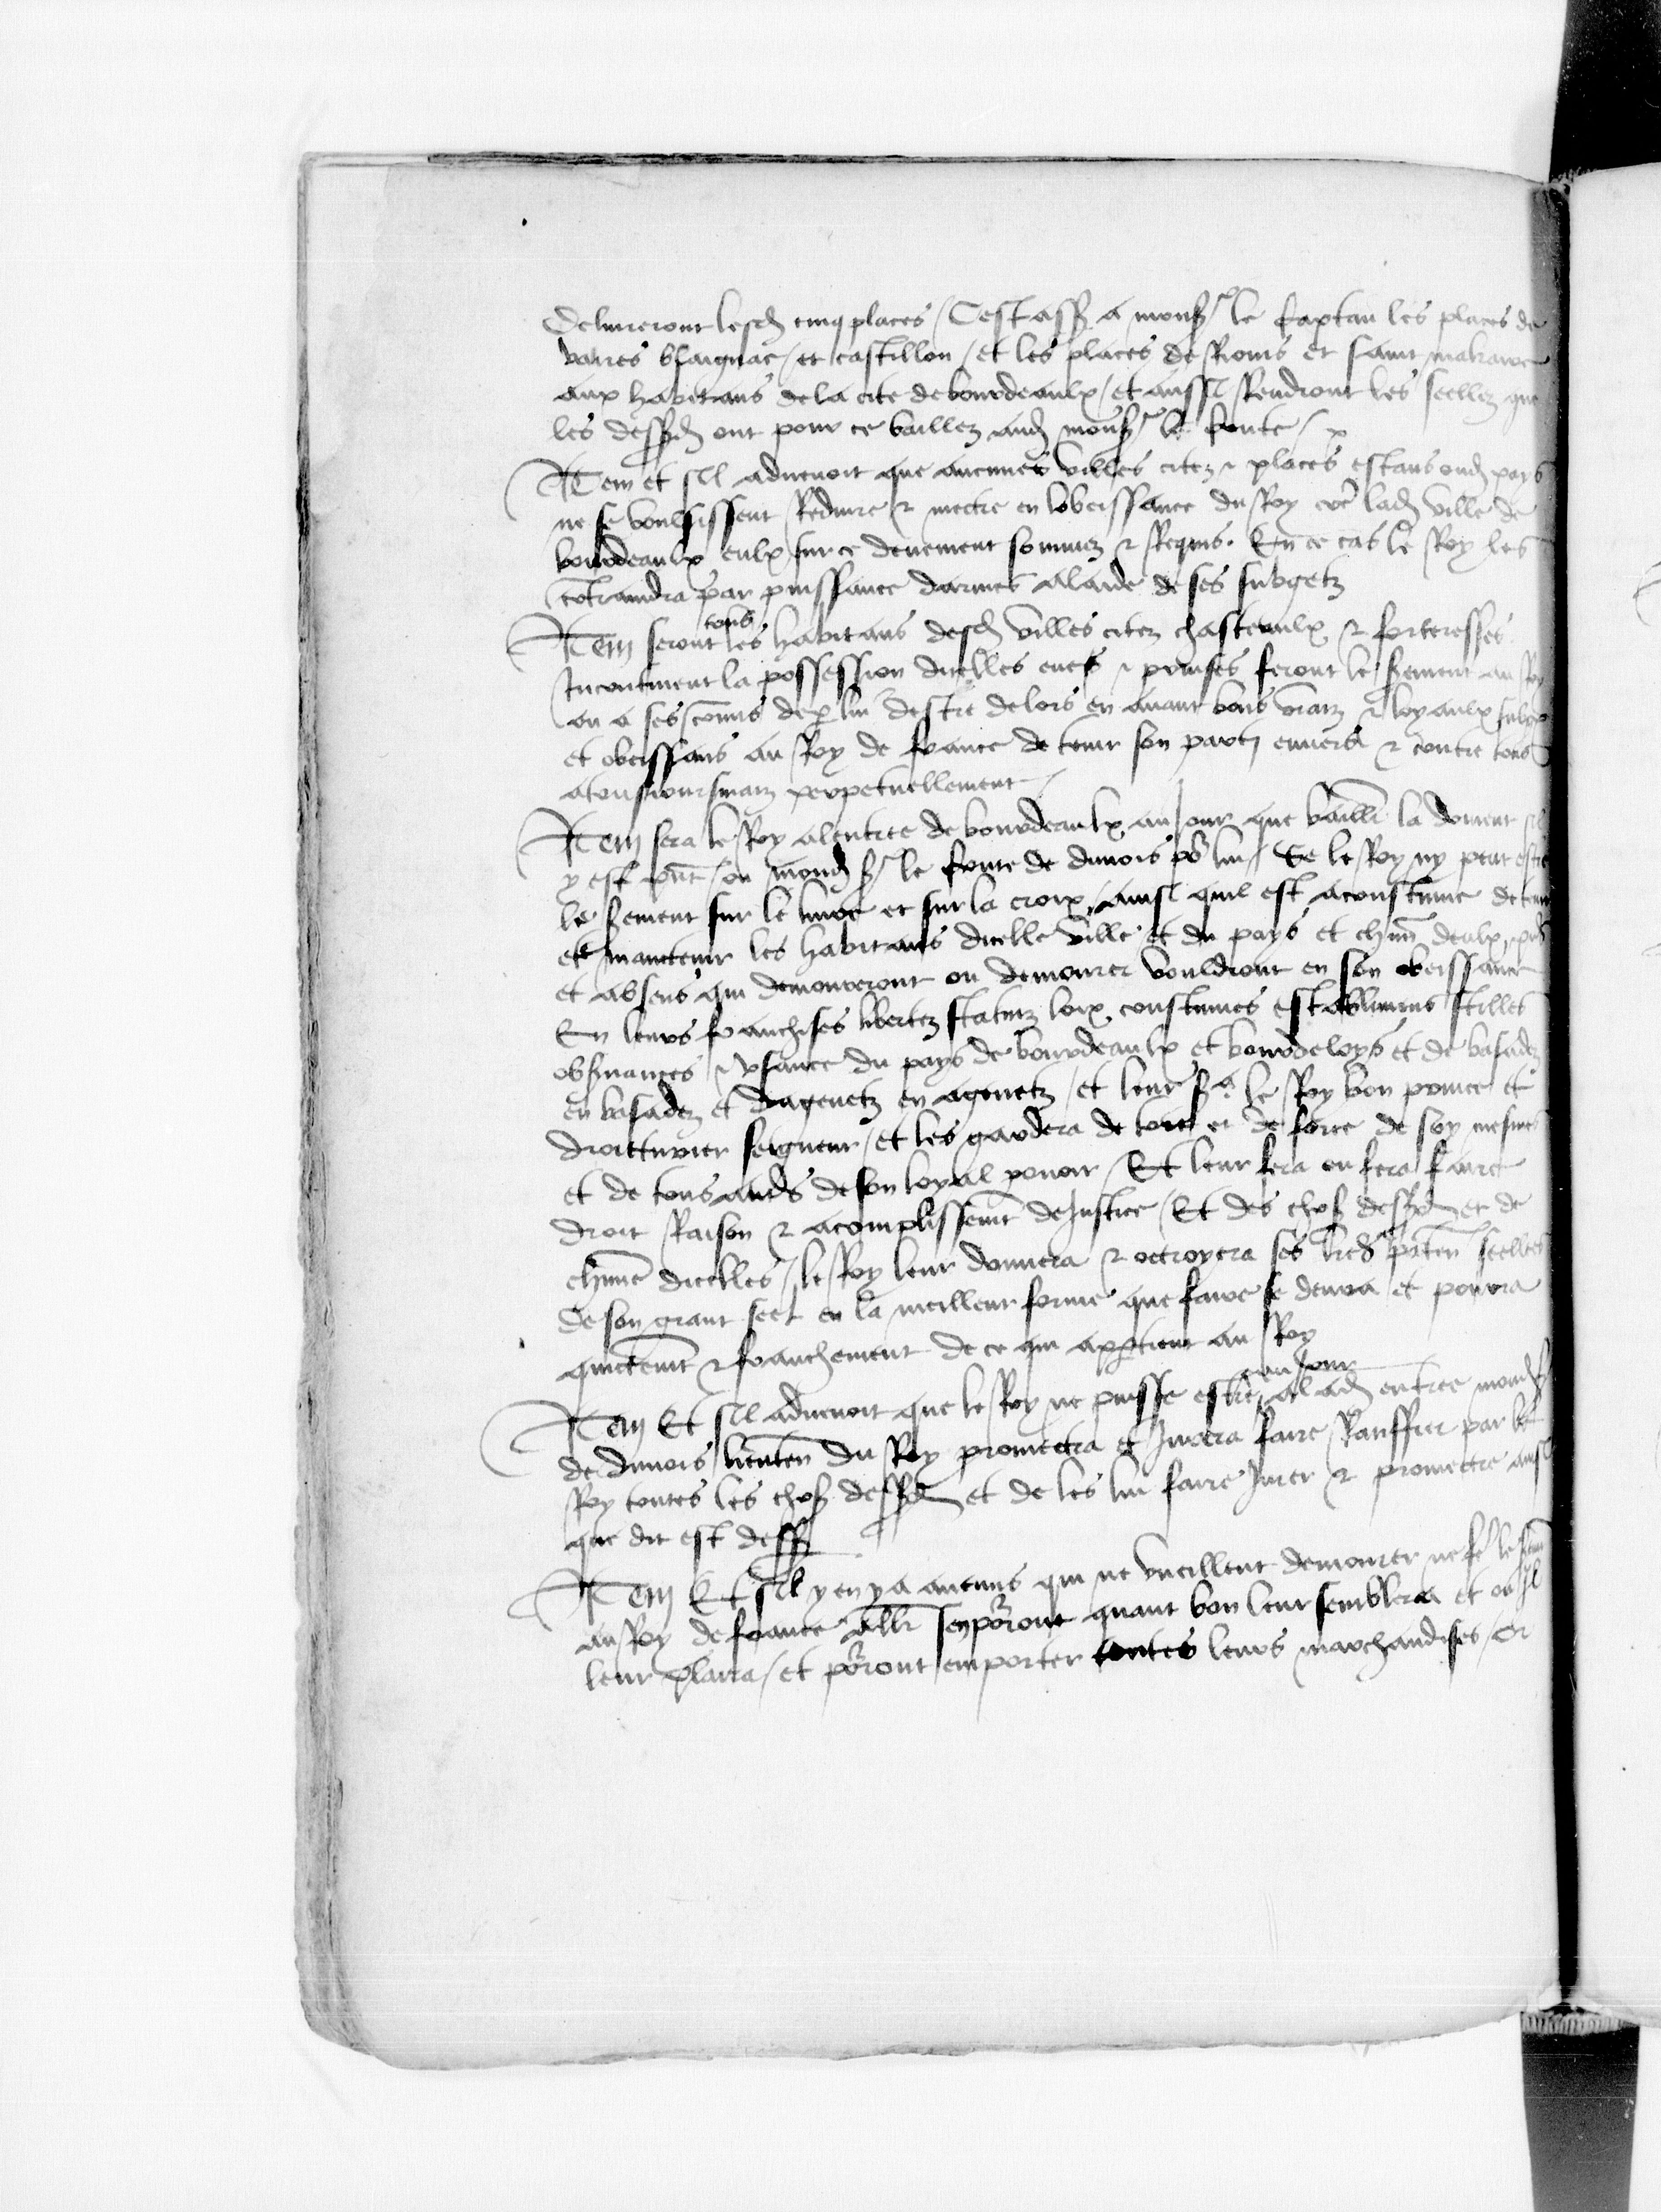 Delivreront lesd cinq places / Cest ass a mons le captau les places de
vaires blaignac / et castillon / et les places de Rions et saint makaire
aux habitans de la cite de bourdeaulx / et aussi Rendront les seellez que
les dessd ont pour ce baillez aud mons le conte /
Item et sil advenoit que aucunes villes citez & places estans oud pays
ne se voulsissent Reduire & mectre en lobeissance du Roy coe lad ville de
bourdeaulx eulx sur ce deuement sommez & Requis. En ce cas le Roy les
cotraindra par puissance darmes alaide de ses subgetz
tous
Item seront les habitans desd villes citez chasteaulx & forteresses
Incontinent la possession dicelles eues & prinses feront le serment au Roy
ou a ses comis de p lui destre delors en avant bons vraiz & loyaulx subgez
et obeissans au Roy de france de tenir son parti envers & contre tous
atousioursmaiz perpetuellement
Item sera le Roy alentree de bourdeaulx au Jour que baille la doivent sil
y est pnt / ou mond s le conte de dunois po lui / Se le Roy ny peut estre
le serment sur le livre et sur la croix / ainsi quil est acoustume de tenir
et maintenir les habitans dicelle ville et du pays et chun deulx pns
et absens qui demourront ou demourer vouldront en son obeissance
En leurs franchises libertez statuz loix coustumes establimens stilles
obsvances & usance du pays de bourdeaulx et bourdeloys et de basadez
en basadez et dagenetz en agenetz / et leur sa le Roy bon prince et
droitturier seigneur / et les gardera de tort et de force de soy mesmes
et de tous auts de son loyal povoir / Et leur fera ou fera faire
droit Raison & acomplissemt de Justice / Et des chos dessd et de
chune dicelles / le Roy leur donnera & octroyera ses lres paten seellees
de son grant seel en la meilleur forme que faire se devra et pourra
quictemt & franchement de ce qui aptient au Roy
aud Jour
Item Et sil advenoit que le Roy ne puisse estre alad entree mond s
de dunois lieuten du Roy promectra et Jurera faire Ratiffier par le
Roy toutes les chos dessd et de les lui faire Jurer & promectre ainsi
que dit est dess
Item Et sil y en y a aucuns qui ne vueillent demourer ne fe le serm
au Roy de france aller sen porront quant bon leur semblera et ou Il
leur plaira / et porront emporter toutes leurs marchandises / or